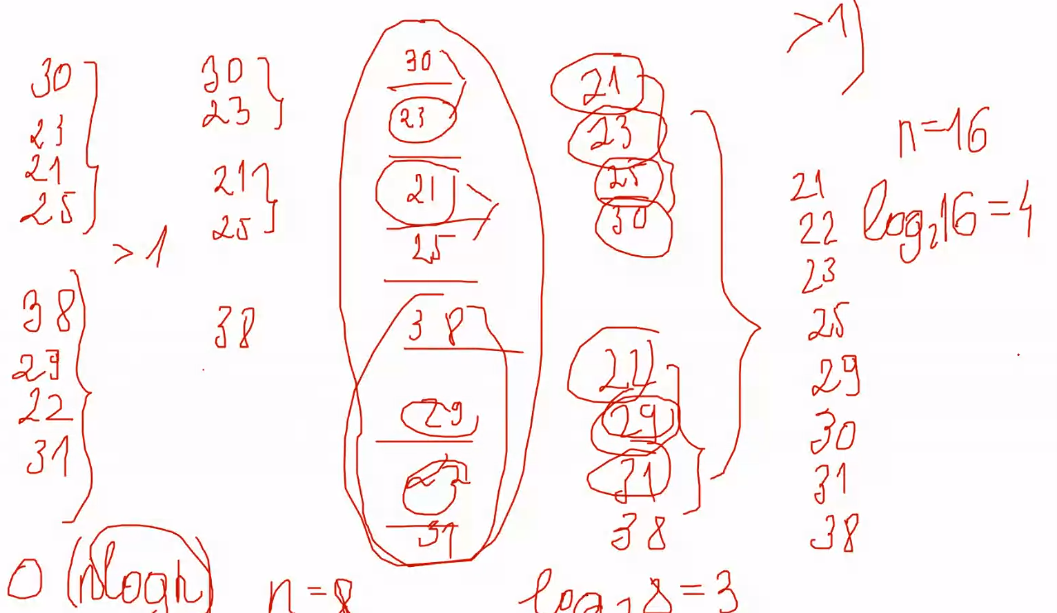 30
23
21
25
> 1
38
29
22
31
30
23
21
25
38
30
23
21
25
38
29
31
21
23
25
30
22
29
31
38
> 1)
n=16
log₂16=4
21
22
23
25
29
30
31
38
O (nlogn)
n=8
log₂8=3